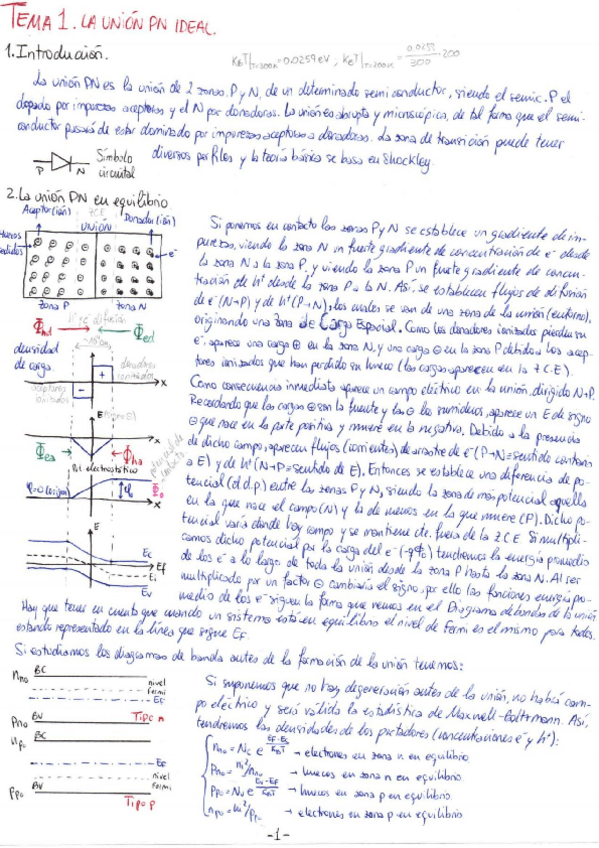 TEMA 1. LA UNIÓN PN IDEAL.
1. Introducción.
KBT|T=300K = 0.0259 eV ; KBT|T=200K = 0.0259/300 · 200
La unión PN es la unión de 2 zonas, P y N, de un determinado semiconductor, siendo el semic. P el
dopado por impurezas aceptoras y el N por donadoras. La unión es abrupta y microscópica, de tal forma que el semi-
conductor pasará de estar dominado por impurezas aceptoras a donadoras. La zona de transición puede tener
diversos perfiles y la teoría básica se basa en Shockley.
P N Símbolo
circuital
2. La unión PN en equilibrio
Aceptor (ión) Z.C.E Donador (ión)
UNIÓN
Huecos
e-
zona P zona N
Si ponemos en contacto las zonas P y N se establece un gradiente de im-
purezas, viendo la zona N un fuerte gradiente de concentración de e- desde
la zona N a la zona P, y viendo la zona P un fuerte gradiente de concen-
tración de h+ desde la zona P a la N. Así, se establecen flujos de difusión
de e- (N→P) y de h+ (P→N), los cuales se van de una zona de la unión (entorno),
originando una Zona de Carga Espacial. Como los donadores ionizados pierden su
e-, aparece una carga ⊕ en la zona N, y una carga ⊖ en la zona P debido a los acep-
tores ionizados que han perdido su hueco (las cargas aparecen en la Z.C.E).
Como consecuencia inmediata aparece un campo eléctrico en la unión, dirigido N→P.
Recordando que las cargas ⊕ son la fuente y las ⊖ los sumideros, aparece un E de signo
⊖ que nace en la parte positiva y muere en la negativa. Debido a la presencia
de dicho campo, aparecen flujos (corrientes) de arrastre de e- (P→N = sentido contrario
a E) y de h+ (N→P = sentido de E). Entonces se establece una diferencia de po-
tencial (d.d.p) entre las zonas P y N, siendo la zona de más potencial aquella
en la que nace el campo (N) y la de menos en la que muere (P). Dicho po-
tencial varía donde hay campo y se mantiene cte. fuera de la Z.C.E. Si multipli-
camos dicho potencial por la carga del e- tendremos la energía promedio
de los e- a lo largo de toda la unión desde la zona P hasta la zona N. Al ser
multiplicado por un factor ⊖ cambiaría el signo, por ello las funciones energía pro-
medio de los e- siguen la forma que vemos en el Diagrama de bandas de la unión.
Φhd Φed
densidad
de carga
donadores
ionizados
aceptores
ionizados
x
E
x
Φea Φha
Pot. electrostático
x
E
Ec
Ef
Ei
Ev
x
Hay que tener en cuenta que cuando un sistema está en equilibrio el nivel de Fermi es el mismo para todos,
estando representado en la línea que sigue EF.
Si estudiamos los diagramas de banda antes de la formación de la unión tenemos:
nno BC
nivel
fermi
EF
Pno BV Tipo n
npo BC
EF
nivel
fermi
Ppo BV
Tipo p
Si suponemos que no hay degeneración antes de la unión, no habrá cam-
po eléctrico y será válida la estadística de Maxwell-Boltzmann. Así,
tendremos las densidades de los portadores (concentraciones e- y h+):
nno = Nc e^(EF-Ec)/KBT → electrones en zona n en equilibrio
Pno = ni²/nno → huecos en zona n en equilibrio
Ppo = Nv e^(Ev-EF)/KBT → huecos en zona p en equilibrio
npo = ni²/Ppo → electrones en zona p en equilibrio
-1-